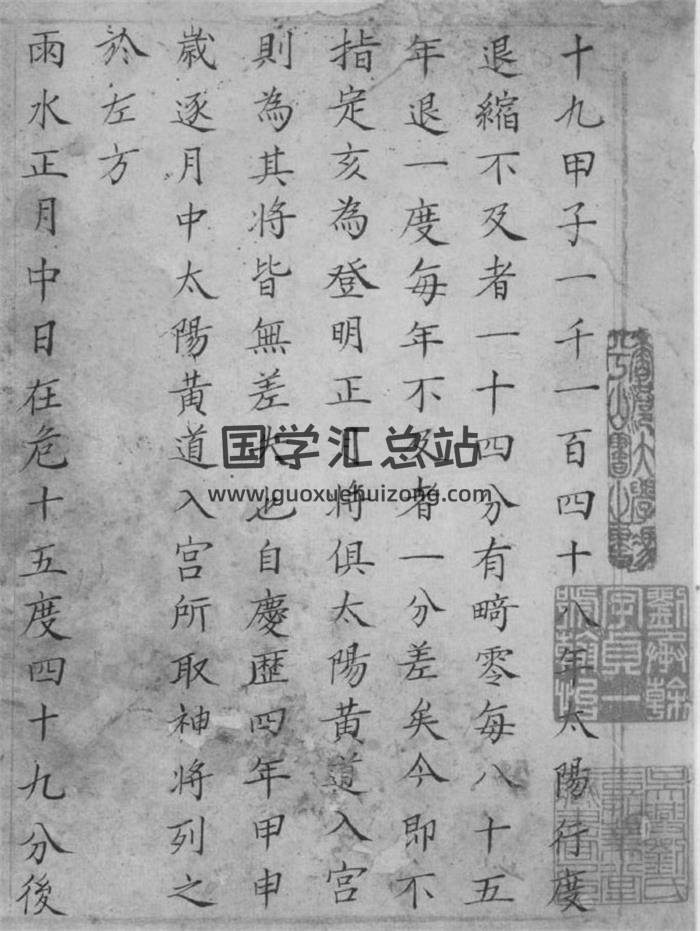 十九甲子一千一百四十八年太陽行度
退縮不及者一十四分有畸零每八十五
年退一度每年不及者一分差矣今即不
指定亥為登明正月將俱太陽黃道入宮
則為其將皆無差失也自慶歷四年甲申
嵗逐月中太陽黃道入宮所取神將列之
於左方
雨水正月中日在危十五度四十九分後
国学汇总站
www.guoxuehuizong.com